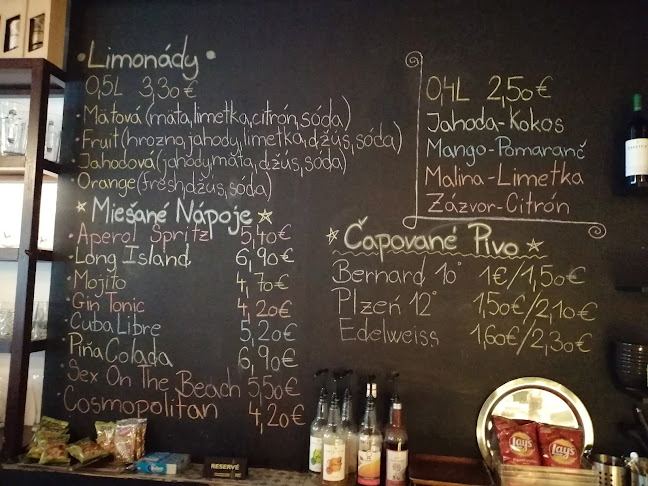 • Limonády •
0,5L 3,30€
• Mätová (mäta, limetka, citrón, sóda)
• Fruit (hrozno, jahody, limetka, džús, sóda)
• Jahodová (jahody, mäta, džús, sóda)
• Orange (fresh, džús, sóda)
★ Miešané Nápoje ★
• Aperol Spritz 5,40€
• Long Island 6,90€
• Mojito 4,70€
• Gin Tonic 4,20€
• Cuba Libre 5,20€
• Piňa Colada 6,90€
• Sex On The Beach 5,50€
• Cosmopolitan 4,20€
0,4L 2,50€
Jahoda-Kokos
Mango-Pomaranč
Malina-Limetka
Zázvor-Citrón
★ Čapované Pivo ★
Bernard 10° 1€/1,50€
Plzeń 12° 1,50€/2,10€
Edelweiss 1,60€/2,30€
RESERVÉ
Lay's
Lay's